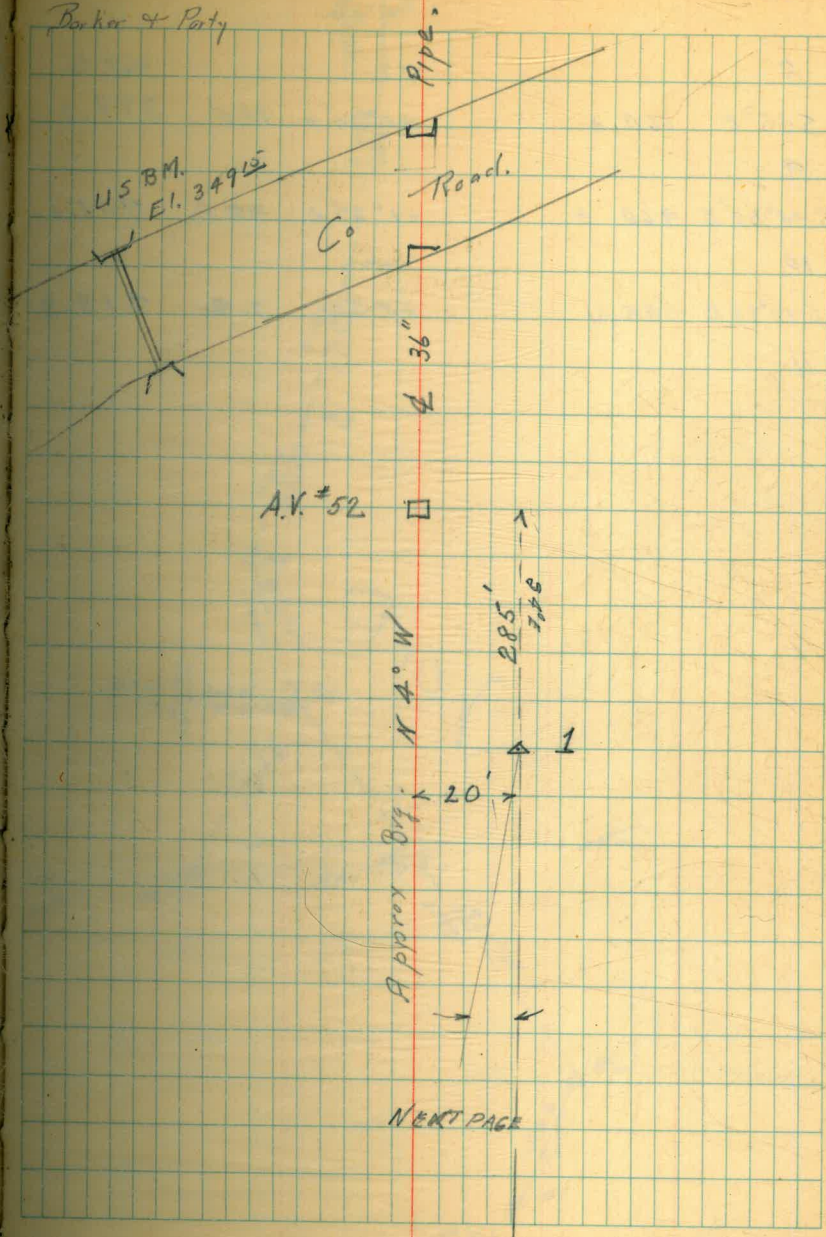 Barker & Party
Pipe.
US BM.
El. 349 15
Road.
Co
℄ 36"
A.V. #52
285'
N 4° W
1
20'
Approx Brg.
NEXT PAGE